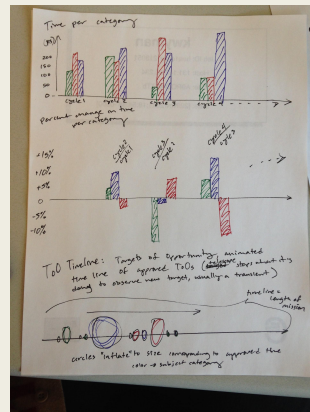 Time per category
200
150
100
50
0
cycle 1
cycle 2
cycle 3
cycle 4
percent change in time
per category
cycle 2
cycle 1
cycle 3
cycle 2
cycle 4
cycle 3
+15%
+10%
+5%
0
-5%
-10%
ToO Timeline: Targets of Opportunity, animated
time line of approved ToOs ( stops what it's
doing to observe new target, usually a transient)
timeline =
length of
mission
circles "inflate" to size corresponding to approved time
color → subject category